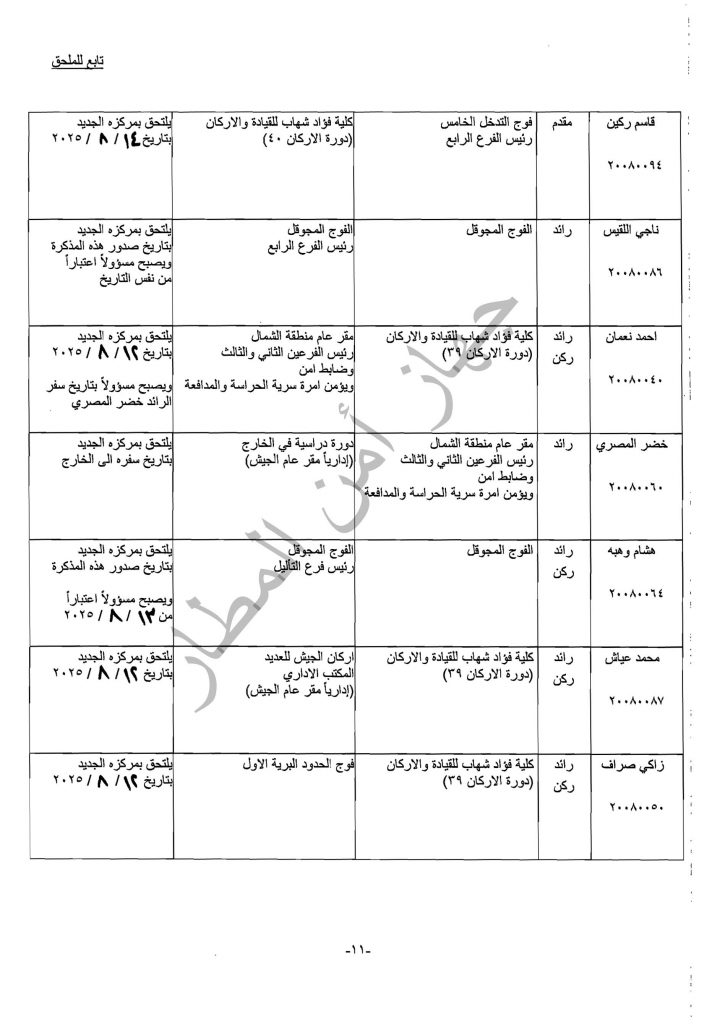 تابع للملحق
قاسم ركين
٢٠٠٨٠٠٩٤
مقدم
فوج التدخل الخامس
رئيس الفرع الرابع
كلية فؤاد شهاب للقيادة والاركان
(دورة الاركان ٤٠)
يلتحق بمركزه الجديد
بتاريخ ١٤ / ٨ / ٢٠٢٥
ناجي اللقيس
٢٠٠٨٠٠٨٦
رائد
الفوج المجوقل
الفوج المجوقل
رئيس الفرع الرابع
يلتحق بمركزه الجديد
بتاريخ صدور هذه المذكرة
ويصبح مسؤولاً اعتباراً
من نفس التاريخ
احمد نعمان
٢٠٠٨٠٠٤٠
رائد
ركن
كلية فؤاد شهاب للقيادة والاركان
(دورة الاركان ٣٩)
مقر عام منطقة الشمال
رئيس الفرعين الثاني والثالث
وضابط امن
ويؤمن امرة سرية الحراسة والمدافعة
يلتحق بمركزه الجديد
بتاريخ ١٢ / ٨ / ٢٠٢٥
ويصبح مسؤولاً بتاريخ سفر
الرائد خضر المصري
خضر المصري
٢٠٠٨٠٠٦٠
رائد
مقر عام منطقة الشمال
رئيس الفرعين الثاني والثالث
وضابط امن
ويؤمن امرة سرية الحراسة والمدافعة
دورة دراسية في الخارج
(إدارياً مقر عام الجيش)
يلتحق بمركزه الجديد
بتاريخ سفره الى الخارج
هشام وهبه
٢٠٠٨٠٠٦٤
رائد
ركن
الفوج المجوقل
الفوج المجوقل
رئيس فرع التأليل
يلتحق بمركزه الجديد
بتاريخ صدور هذه المذكرة
ويصبح مسؤولاً اعتباراً
من ١٣ / ٨ / ٢٠٢٥
محمد عياش
٢٠٠٨٠٠٨٧
رائد
ركن
كلية فؤاد شهاب للقيادة والاركان
(دورة الاركان ٣٩)
اركان الجيش للعديد
المكتب الاداري
(إدارياً مقر عام الجيش)
يلتحق بمركزه الجديد
بتاريخ ١٢ / ٨ / ٢٠٢٥
زاكي صراف
٢٠٠٨٠٠٥٠
رائد
ركن
كلية فؤاد شهاب للقيادة والاركان
(دورة الاركان ٣٩)
فوج الحدود البرية الاول
يلتحق بمركزه الجديد
بتاريخ ١٢ / ٨ / ٢٠٢٥
جهاز أمن المطار
-١١-